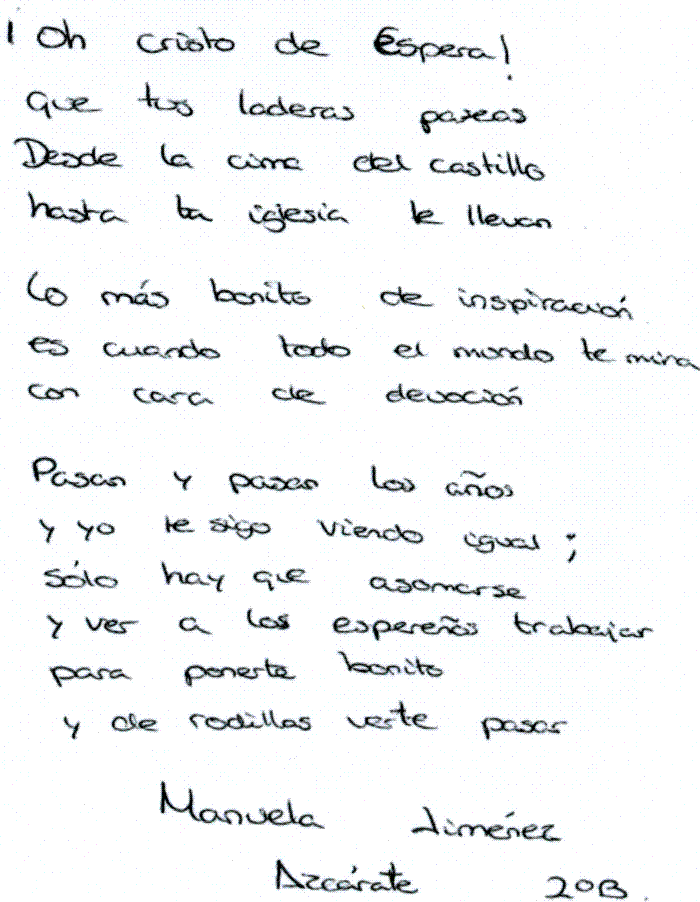 ¡Oh cristo de Espera!
que tus laderas paseas
Desde la cima del castillo
hasta tu iglesia te llevan
Lo más bonito de inspiración
es cuando todo el mundo te mira
con cara de devoción
Pasan y pasan los años
y yo te sigo viendo igual;
sólo hay que asomarse
y ver a los espereños trabajar
para ponerte bonito
y de rodillas verte pasar
Manuela Jiménez
Azcárate 2ºB.